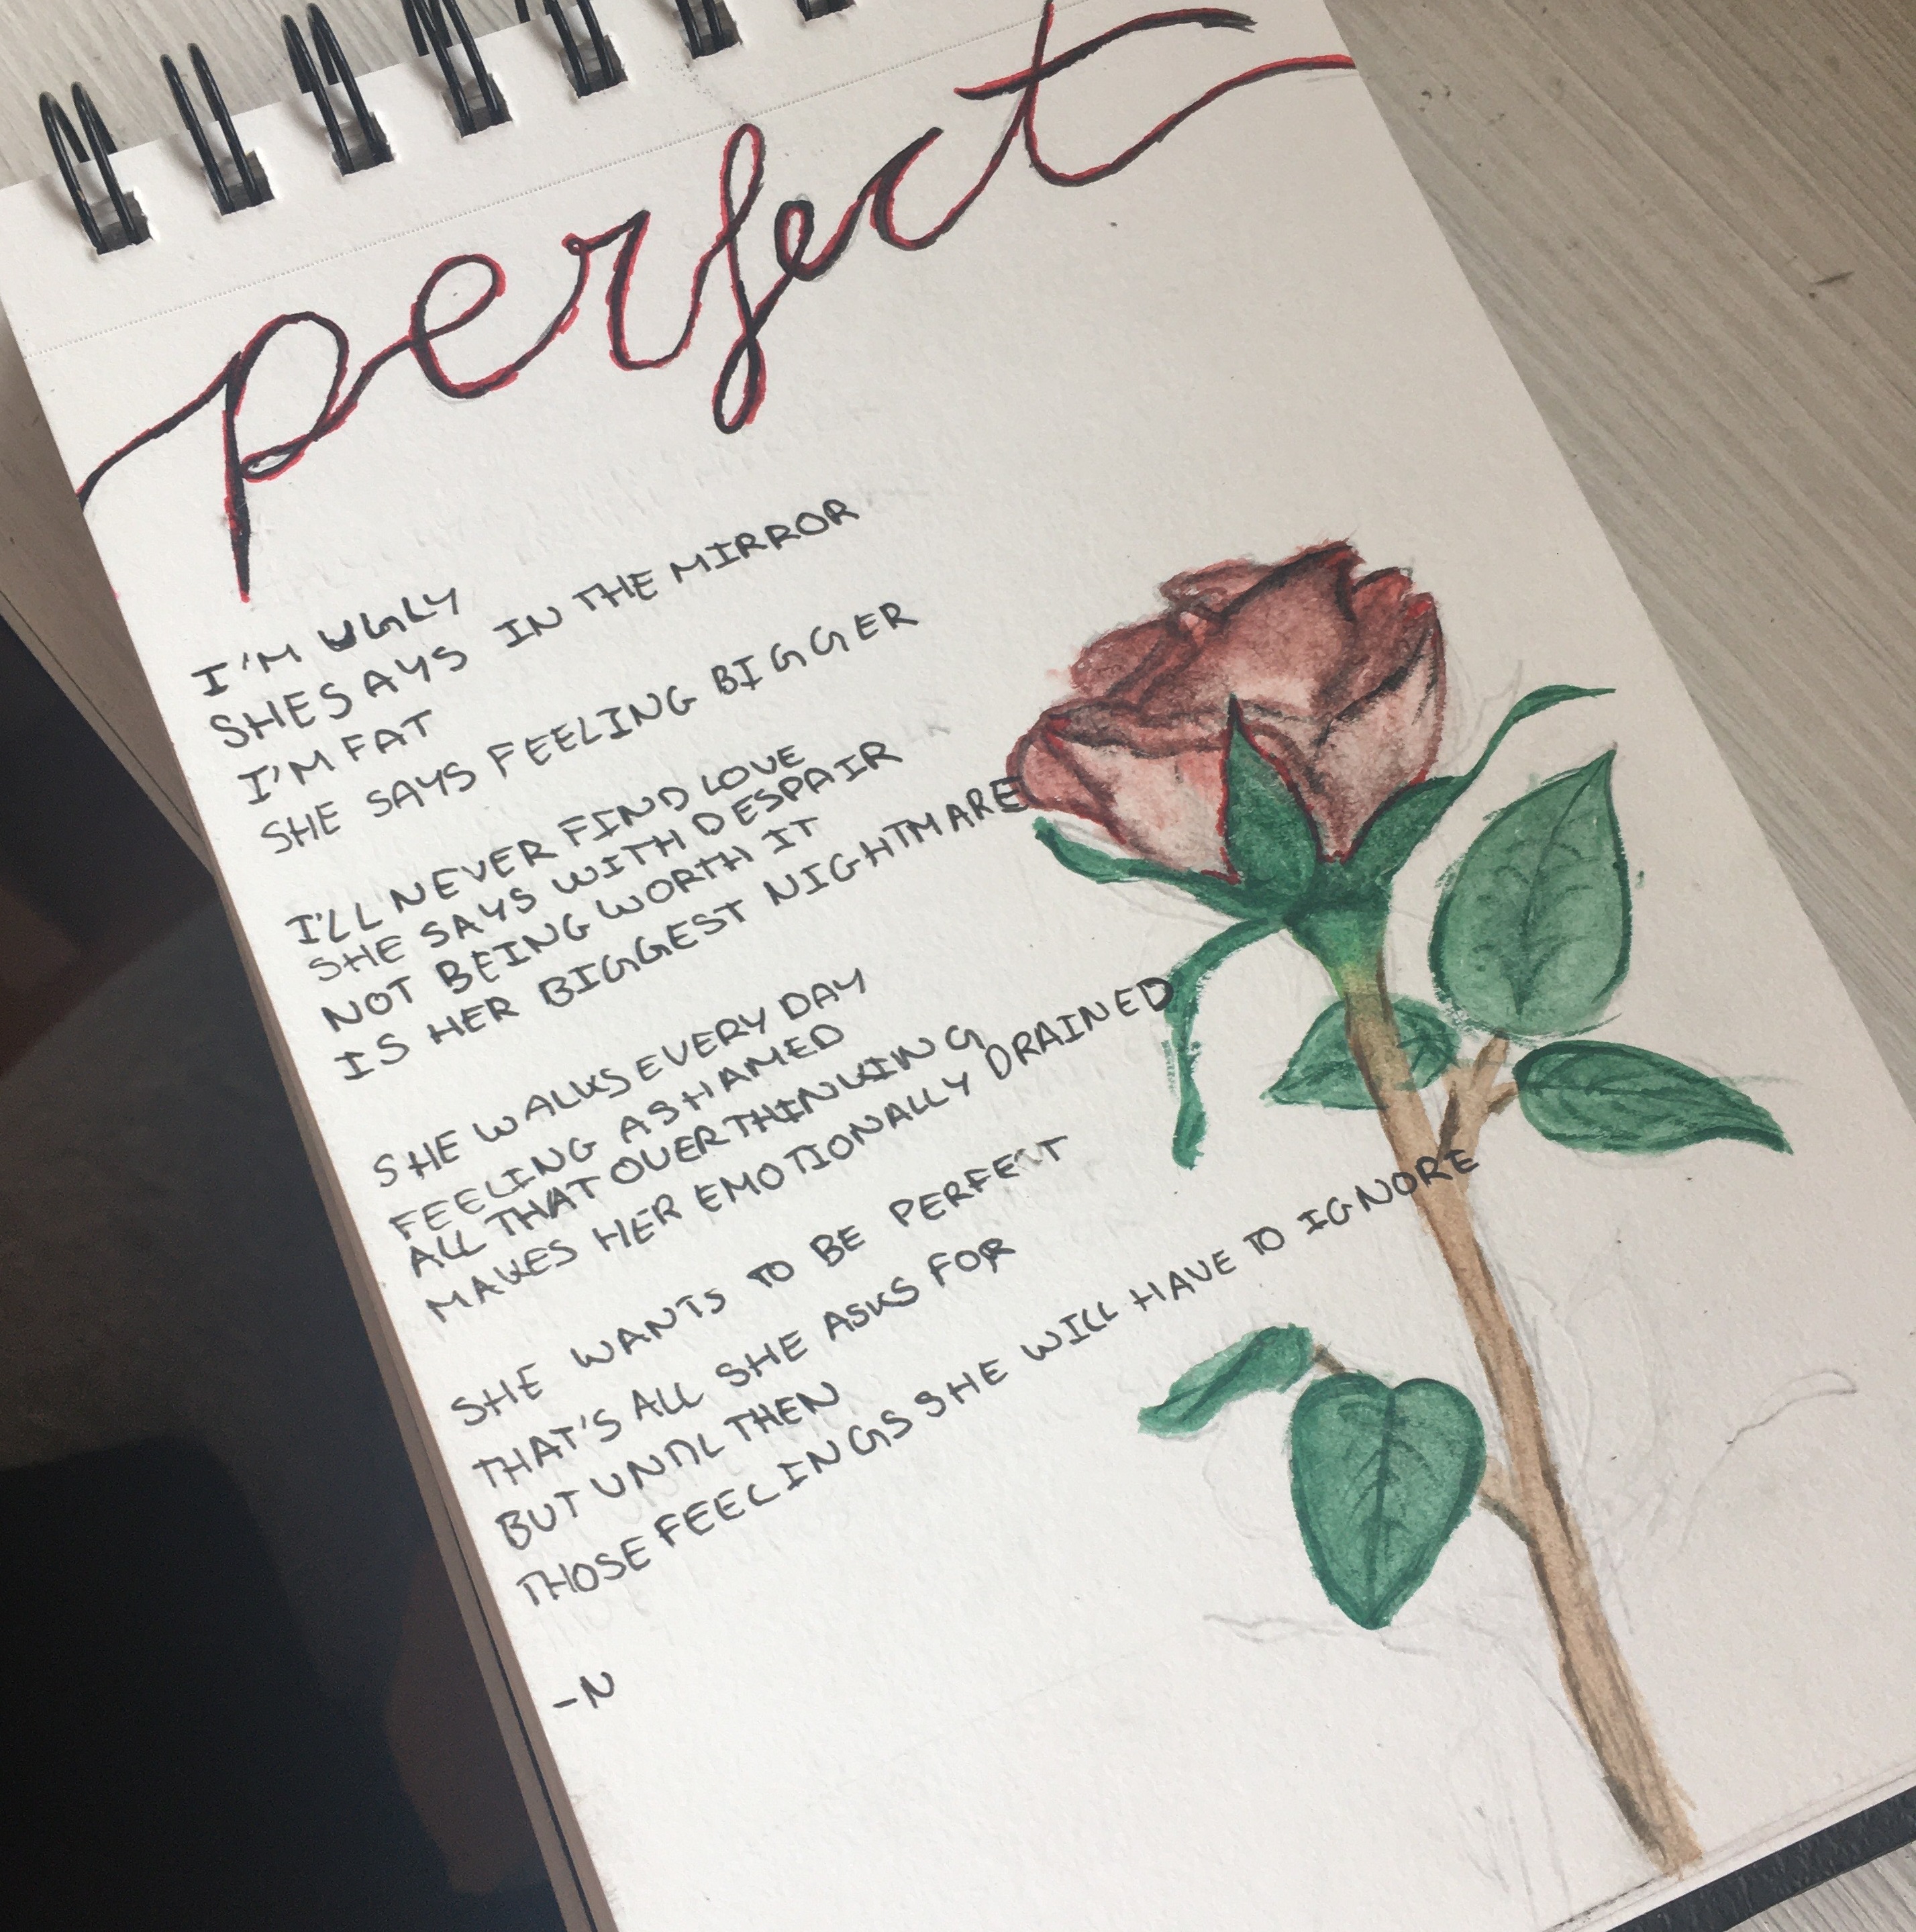 perfect
I'M UGLY
SHE SAYS IN THE MIRROR
I'M FAT
SHE SAYS FEELING BIGGER
I'LL NEVER FIND LOVE
SHE SAYS WITH DESPAIR
NOT BEING WORTH IT
IS HER BIGGEST NIGHTMARE
SHE WALKS EVERY DAY
FEELING ASHAMED
ALL THAT OVERTHINKING
MAKES HER EMOTIONALLY DRAINED
SHE WANTS TO BE PERFECT
THAT'S ALL SHE ASKS FOR
BUT UNTIL THEN
THOSE FEELINGS SHE WILL HAVE TO IGNORE
-N